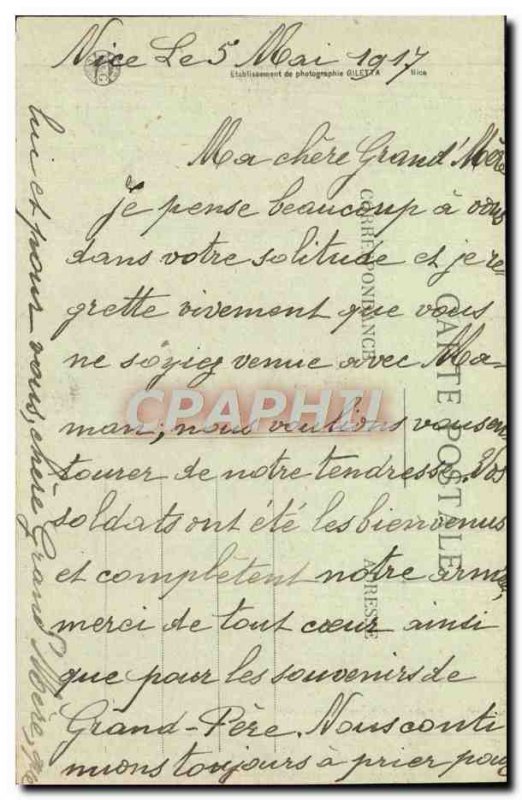 Nice Le 5 Mai 1917
Etablissement de photographie GILETTA Nice
Ma chère Grand'Mère
Je pense beaucoup à vous
dans votre solitude et je re
grette vivement que vous
ne soyiez venue avec Ma-
man, nous voulions vous en
tourer de notre tendresse. Vos
soldats ont été les bienvenus
et complètent notre armée,
merci de tout cœur ainsi
que pour les souvenirs de
Grand-Père. Nous conti
nuons toujours à prier pour
lui et pour vous, chère Grand'Mère,
CARTE POSTALE
CORRESPONDANCE
ADRESSE
CPAPHIL